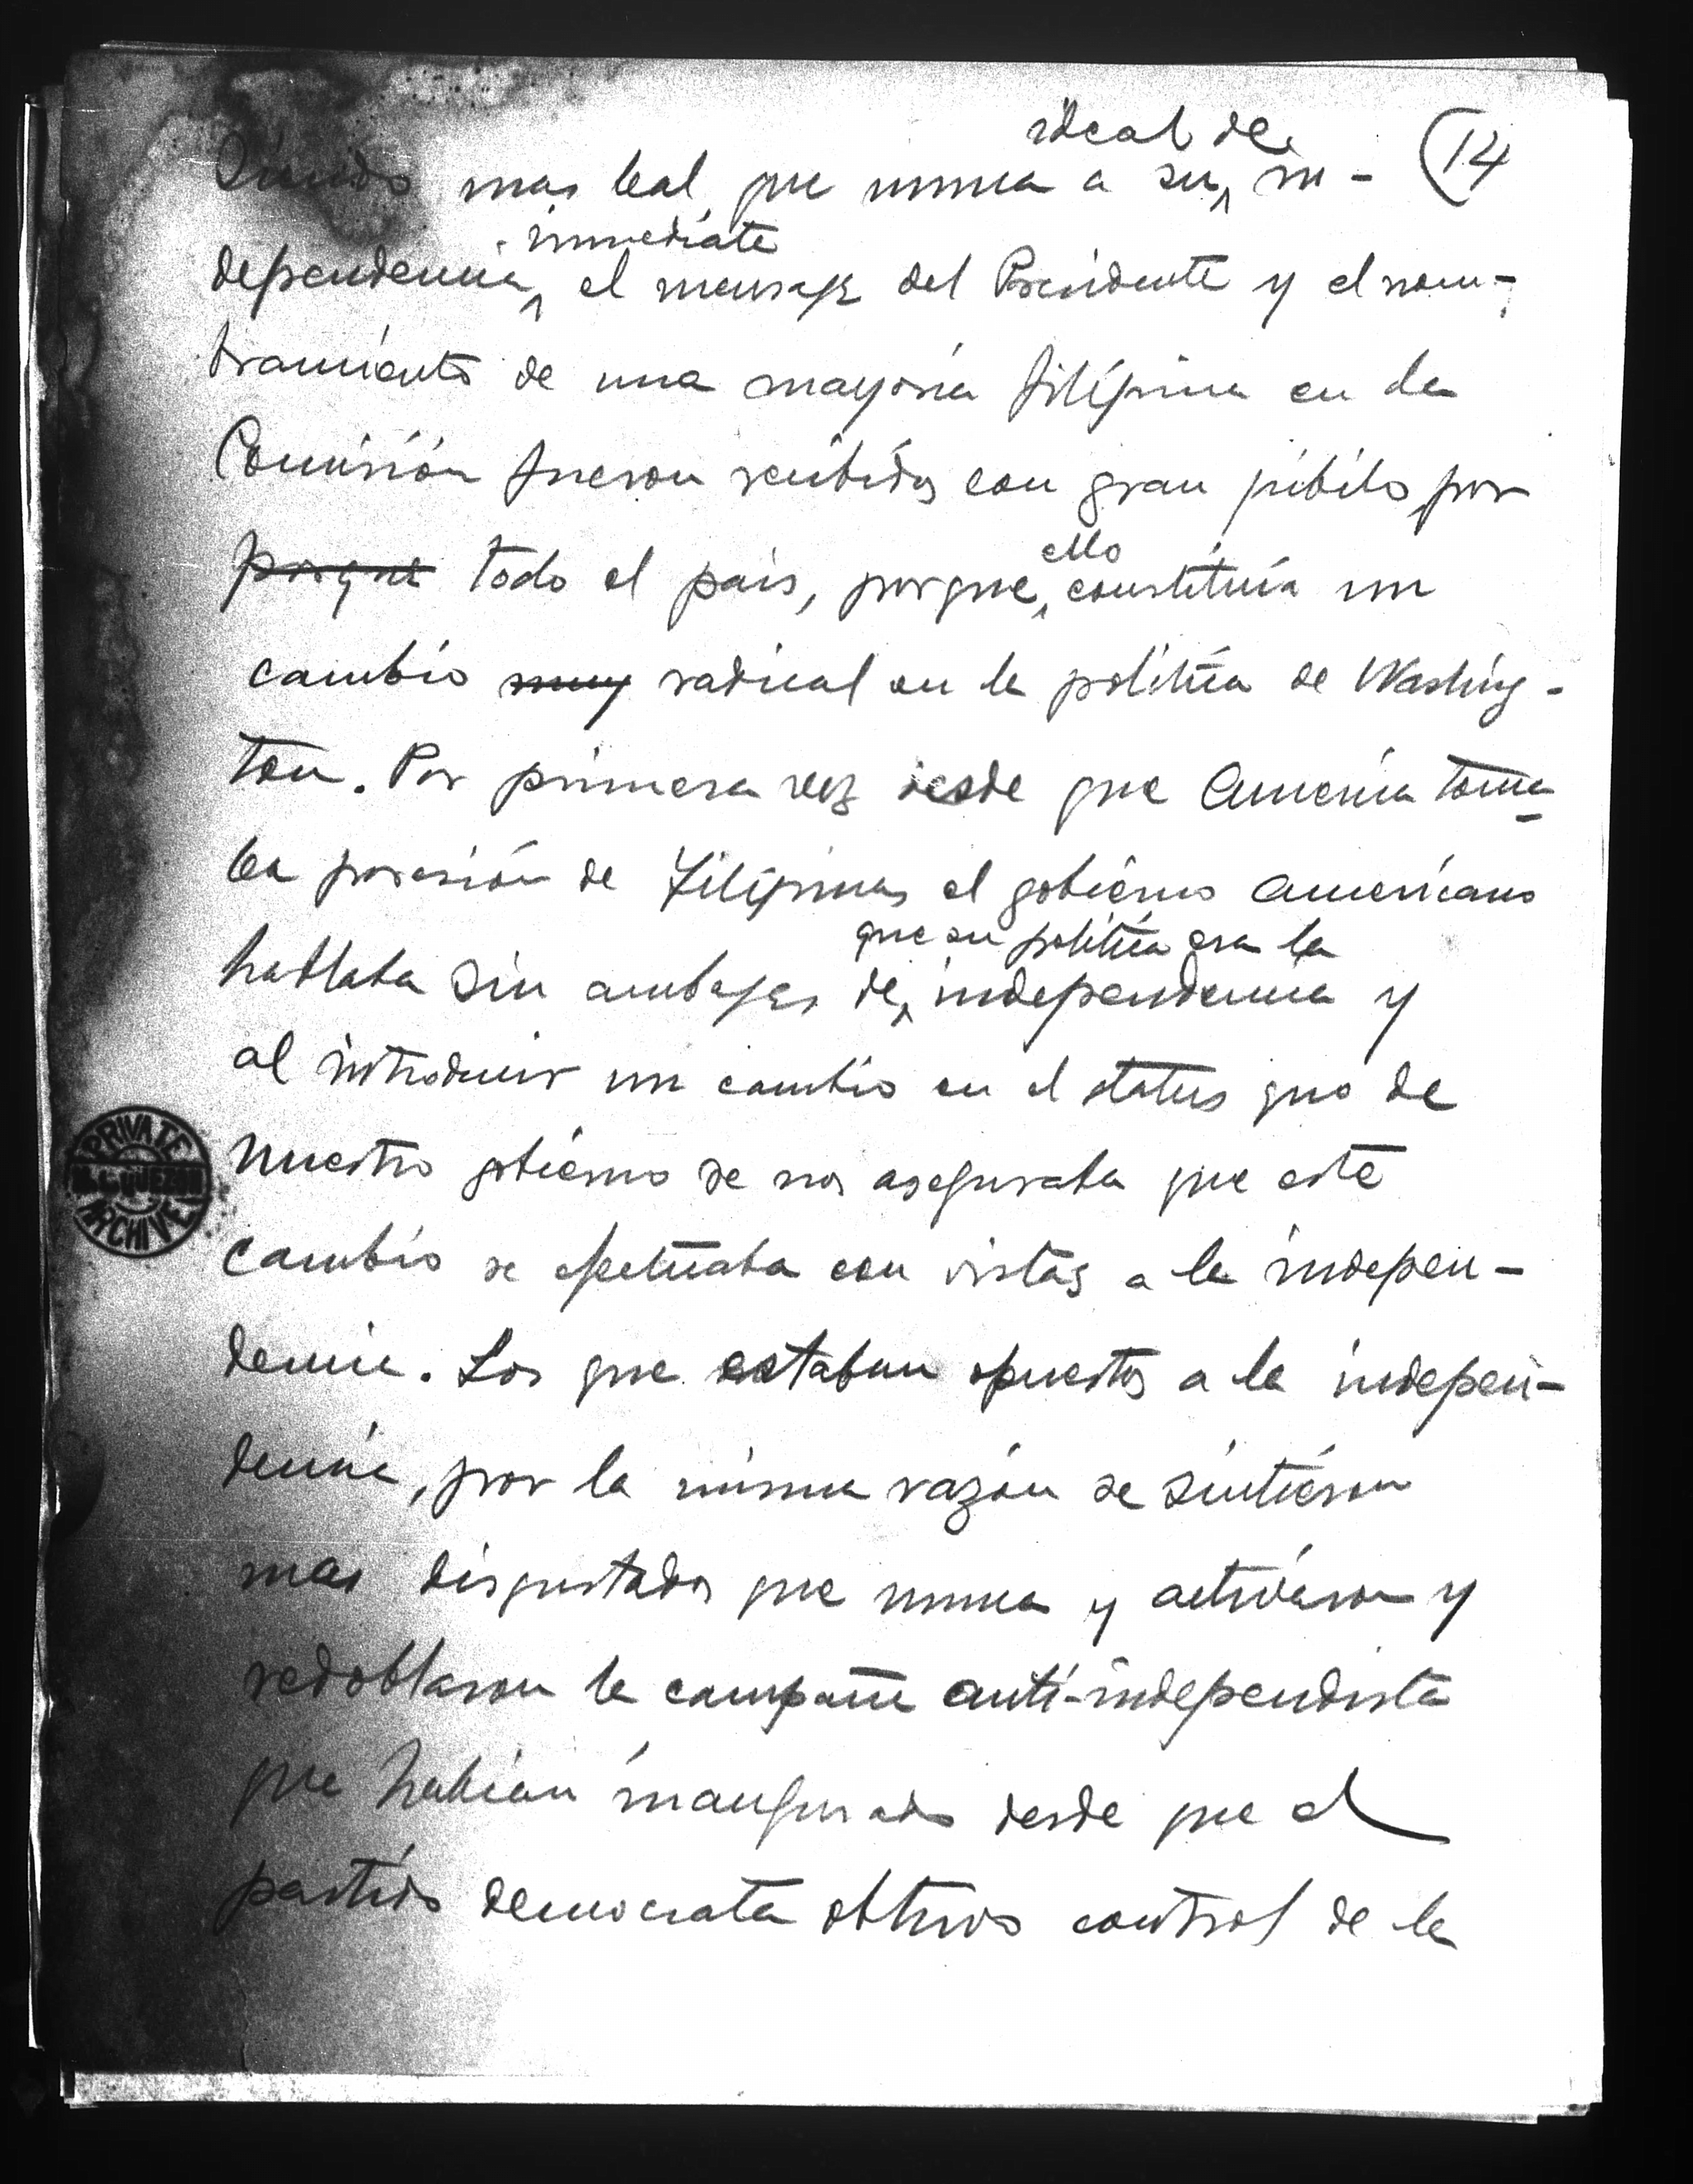 ideal de (14
Siendo mas leal que nunca a su in-
inmediata
dependencia, el mensaje del Presidente y el nom-
bramiento de una mayoria filipina en la
Comisión fueron recibidos con gran júbilo, por
porque todo el pais, porque
ello
constituía un
cambio muy radical en la política de Washing-
ton. Por primera vez desde que America toma
la posesión de Filipinas el gobierno americano
que su política era la
hablaba sin ambajes de independencia y
al introducir un cambio en el status quo de
nuestro gobierno se nos aseguraba que este
cambio se efectuaba con vistas a la indepen-
dencia. Los que estaban opuestos a la indepen-
dencia, por la misma razón se sintieron
mas disgustados que nunca y activaron y
redoblaron la campaña anti-independista
que habían inaugurado desde que el
partido democrata obtuvo control de la
PRIVATE
QUEZON
ARCHIVE